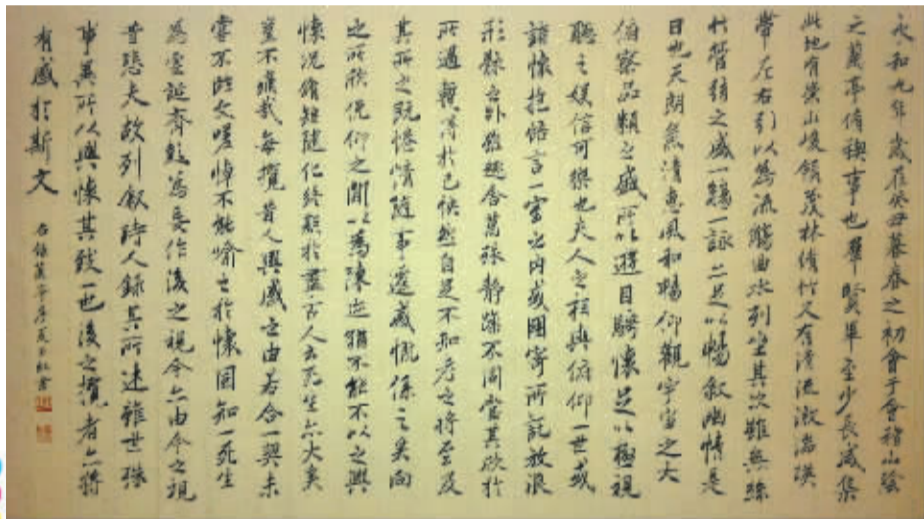 永和九年歲在癸丑暮春之初會于會稽山陰
之蘭亭脩禊事也羣賢畢至少長咸集
此地有崇山峻領茂林脩竹又有清流激湍暎
帶左右引以為流觴曲水列坐其次雖無絲
竹管絃之盛一觴一詠亦足以暢敘幽情是
日也天朗氣清惠風和暢仰觀宇宙之大
俯察品類之盛所以遊目騁懷足以極視
聽之娛信可樂也夫人之相與俯仰一世或
諸懷抱悟言一室之內或因寄所託放浪
形骸之外雖趣舍萬殊靜躁不同當其欣於
所遇輙得於己怏然自足不知老之將至及
其所之既惓情隨事遷感慨係之矣向
之所欣俛仰之閒以為陳迹猶不能不以之興
懷況脩短隨化終期於盡古人云死生亦大矣
豈不痛哉每攬昔人興感之由若合一契未
嘗不臨文嗟悼不能喻之於懷固知一死生
為虛誕齊彭殤為妄作後之視今亦由今之視
昔悲夫故列敘時人錄其所述雖世殊
事異所以興懷其致一也後之攬者亦將
有感於斯文
右錄蘭亭序